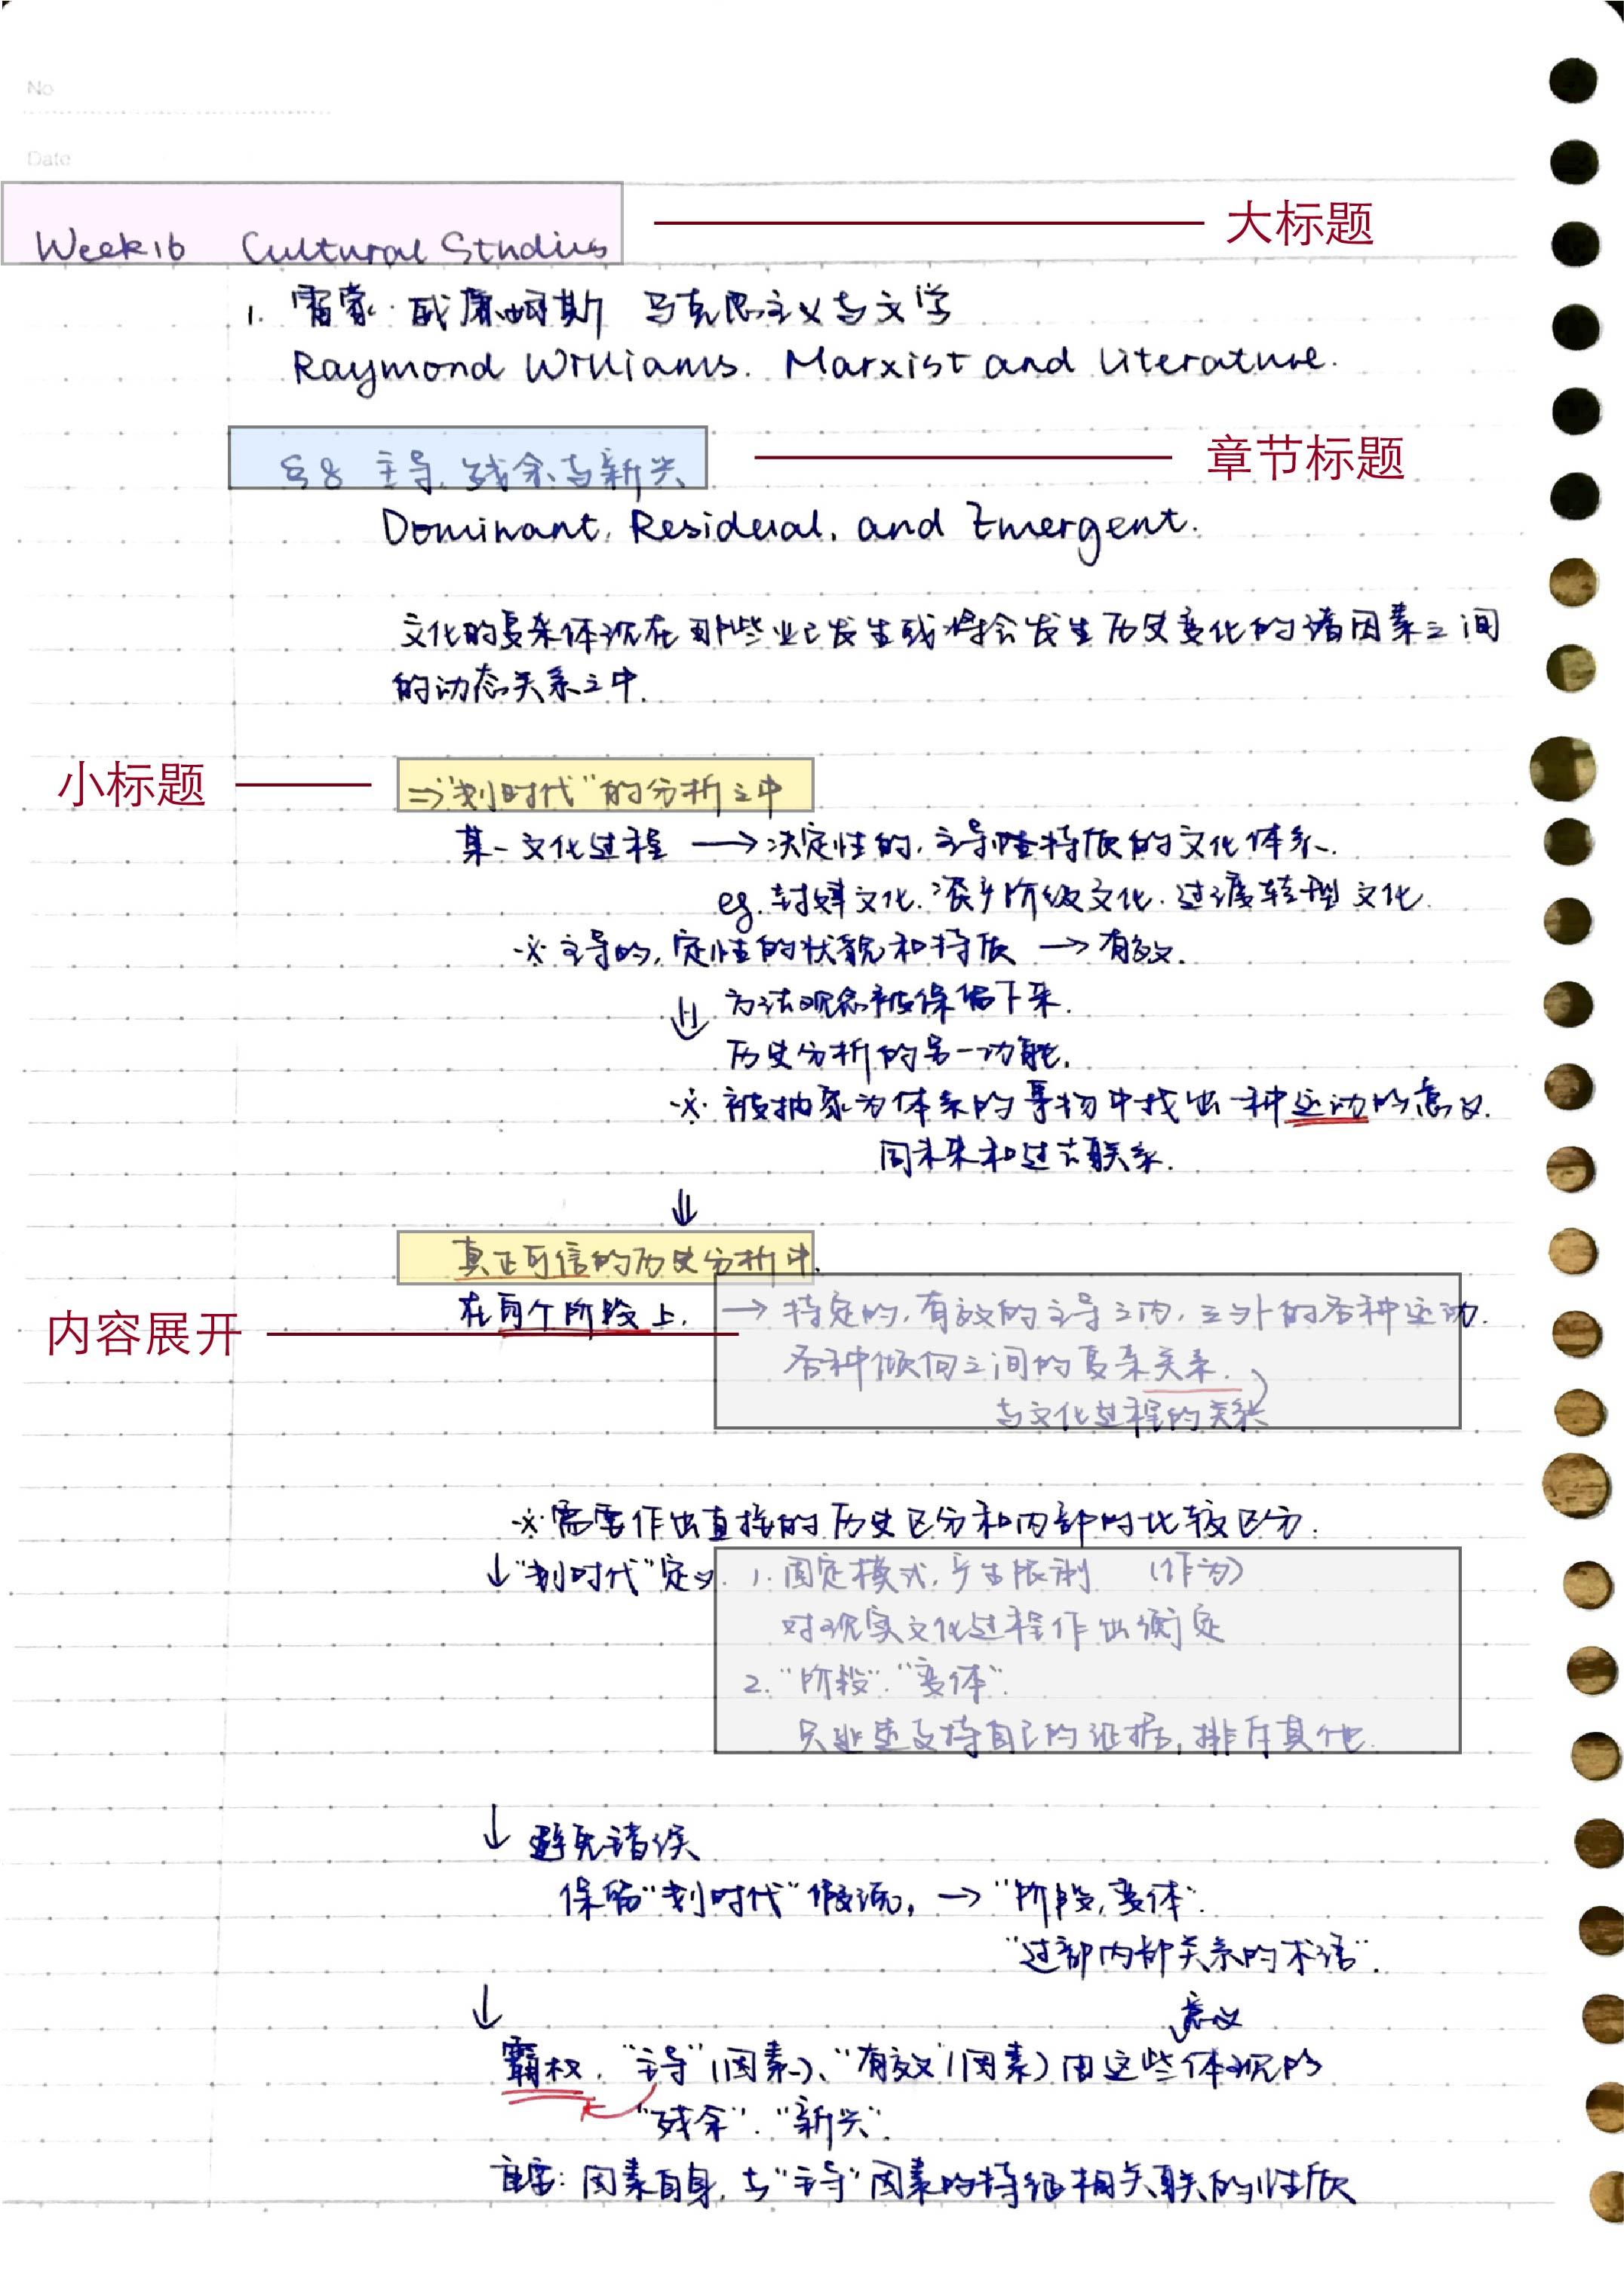 No
Date
Week16 Cultural Studies
大标题
1. 雷蒙·威廉姆斯 马克思主义与文学
Raymond Williams. Marxist and Literature.
章节标题
§8 主导、残余与新兴
Dominant, Residual, and Emergent.
文化的复杂体现在那些业已发生或将会发生历史变化的诸因素之间
的动态关系之中.
小标题
⇒"划时代"的分析之中
某一文化过程 → 决定性的, 主导性特质的文化体系.
eg. 封建文化. 资产阶级文化. 过渡转型文化
※ 主导的, 定性的状貌和特质 → 有效.
⇓ 方法观念被保留下来.
历史分析的另一功能.
※ 被抽象为体系的事物中找出一种运动的意义.
同未来和过去联系.
⇓
真正可信的历史分析中.
内容展开
在每个阶段上. → 特定的, 有效的主导之内, 之外的各种运动.
各种倾向之间的复杂关系.
与文化过程的关联
※ 需要作出直接的历史区分和内部的比较区分.
↓"划时代"定义. 1. 固定模式, 产生限制 (作为)
对现实文化过程作出衡定
2. "阶段". "变体".
只 支持自己的证据, 排斥其他.
↓ 避免错误
保留"划时代"假说, → "阶段, 变体".
"过部内部关系的术语".
↓ 意义
霸权. "主导"(因素)、"有效"(因素) 由这些体现的
"残余". "新兴".
因素自身, 与"主导"因素的特征相关联的性质